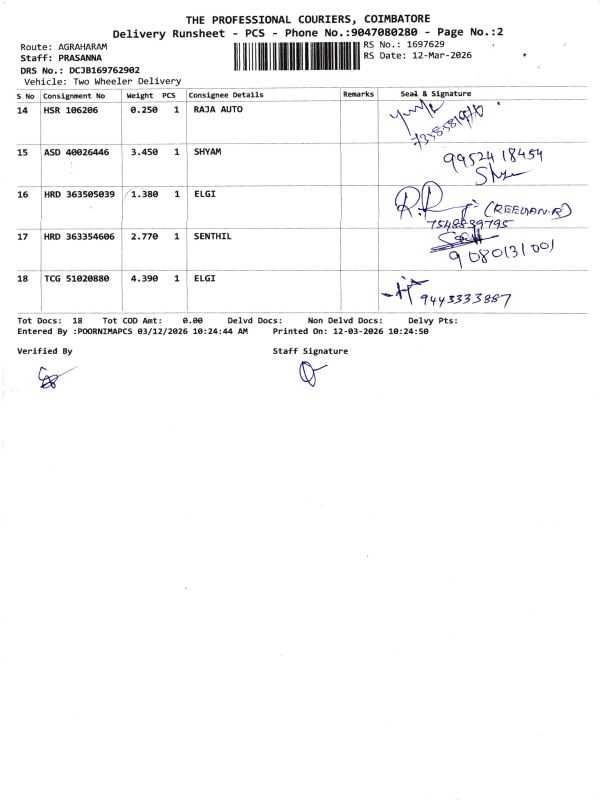 THE PROFESSIONAL COURIERS, COIMBATORE
Delivery Runsheet - PCS - Phone No.:9047080280 - Page No.:2
Route: AGRAHARAM
RS No.: 1697629
Staff: PRASANNA
RS Date: 12-Mar-2026
DRS No.: DCJB169762902
Vehicle: Two Wheeler Delivery
S No Consignment No Weight PCS Consignee Details Remarks Seal & Signature
14 HSR 106206 0.250 1 RAJA AUTO
15 ASD 40026446 3.450 1 SHYAM 9952418454
16 HRD 363505039 1.380 1 ELGI (REEVAN.R)
7548839795
17 HRD 363354606 2.770 1 SENTHIL
9080131001
18 TCG 51020880 4.390 1 ELGI 9443333887
Tot Docs: 18 Tot COD Amt: 0.00 Delvd Docs: Non Delvd Docs: Delvy Pts:
Entered By :POORNIMAPCS 03/12/2026 10:24:44 AM Printed On: 12-03-2026 10:24:50
Verified By Staff Signature